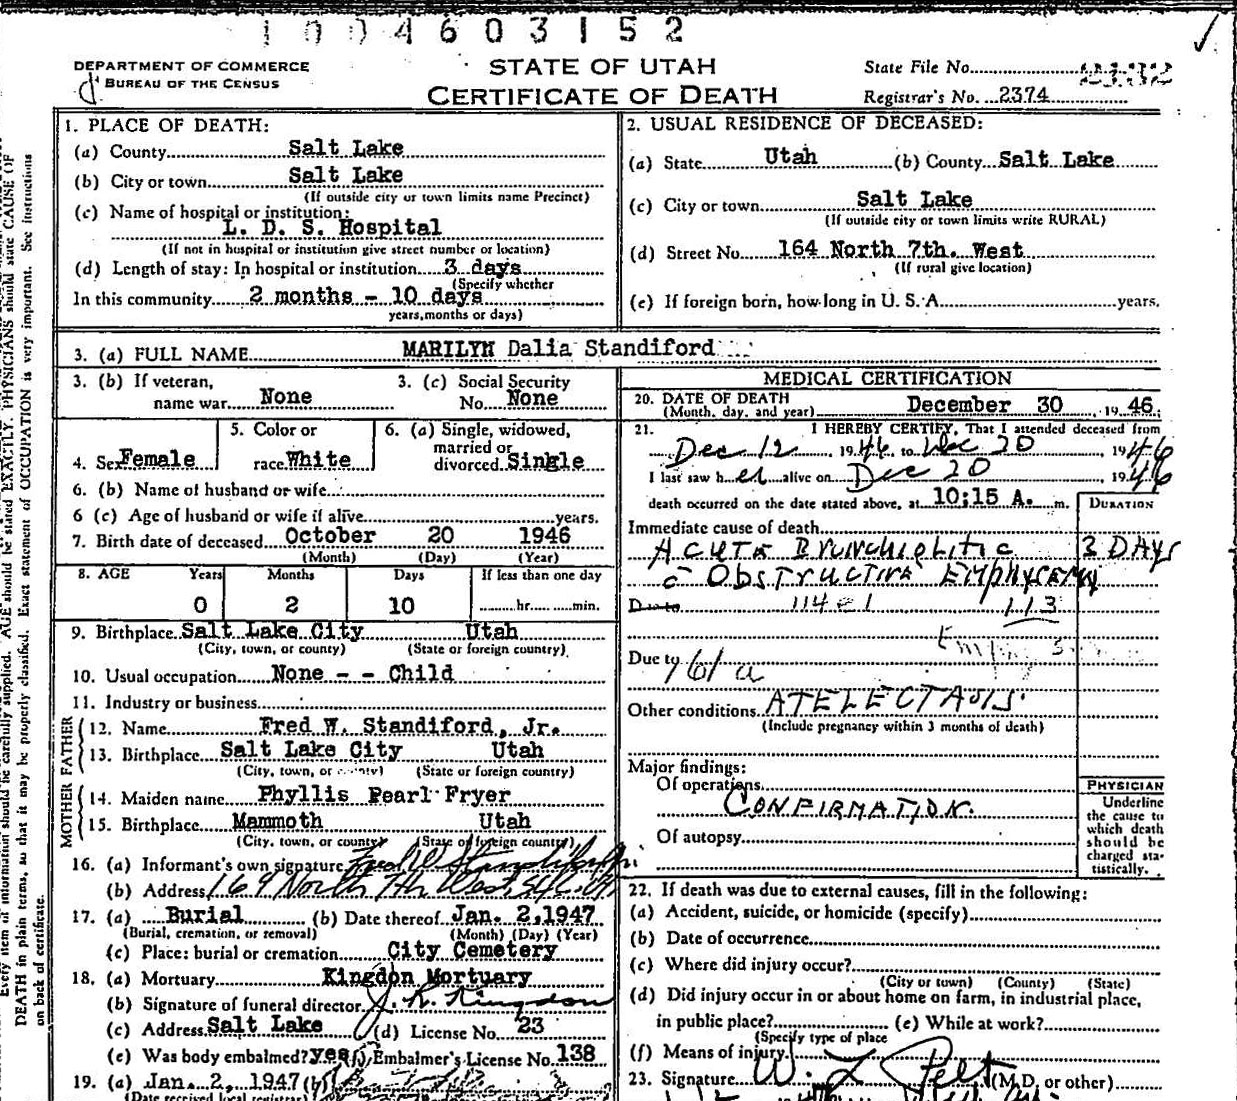 1004603152
DEPARTMENT OF COMMERCE
BUREAU OF THE CENSUS
STATE OF UTAH
CERTIFICATE OF DEATH
State File No.
Registrar's No. 2374
1. PLACE OF DEATH:
(a) County Salt Lake
(b) City or town Salt Lake
(If outside city or town limits name Precinct)
(c) Name of hospital or institution:
L. D. S. Hospital
(If not in hospital or institution give street number or location)
(d) Length of stay: In hospital or institution 3 days
(Specify whether
In this community 2 months - 10 days
years, months or days)
2. USUAL RESIDENCE OF DECEASED:
(a) State Utah (b) County Salt Lake
(c) City or town Salt Lake
(If outside city or town limits write RURAL)
(d) Street No. 164 North 7th. West
(If rural give location)
(e) If foreign born, how long in U. S. A. years.
3. (a) FULL NAME MARILYN Dalia Standiford
3. (b) If veteran, name war None
3. (c) Social Security No. None
4. Sex Female
5. Color or race White
6. (a) Single, widowed, married or divorced Single
6. (b) Name of husband or wife
6 (c) Age of husband or wife if alive years.
7. Birth date of deceased October 20 1946
(Month) (Day) (Year)
8. AGE Years Months Days If less than one day
0 2 10 hr. min.
9. Birthplace Salt Lake City Utah
(City, town, or county) (State or foreign country)
10. Usual occupation None - - Child
11. Industry or business
FATHER
12. Name Fred W. Standiford, Jr.
13. Birthplace Salt Lake City Utah
(City, town, or county) (State or foreign country)
MOTHER
14. Maiden name Phyllis Pearl Fryer
15. Birthplace Mammoth Utah
(City, town, or county) (State or foreign country)
16. (a) Informant's own signature Fred W Standiford Jr.
(b) Address North 7th West
17. (a) Burial (b) Date thereof Jan. 2, 1947
(Burial, cremation, or removal) (Month) (Day) (Year)
(c) Place: burial or cremation City Cemetery
18. (a) Mortuary Kingdon Mortuary
(b) Signature of funeral director J. R. Kingdon
(c) Address Salt Lake (d) License No. 23
(e) Was body embalmed? yes (f) Embalmer's License No. 138
19. (a) Jan. 2, 1947 (b)
(Date received local registrar)
MEDICAL CERTIFICATION
20. DATE OF DEATH
(Month, day, and year) December 30, 1946.
21. I HEREBY CERTIFY, That I attended deceased from
Dec 12, 1946, to Dec 20, 1946
I last saw her alive on Dec 20, 1946
death occurred on the date stated above, at 10:15 A. m.
DURATION
Immediate cause of death
Acute Bronchiolitic 3 DAYS
c Obstructive Emphysema
Due to 114e1 113
Due to 161a
Other conditions ATELECTASIS.
(Include pregnancy within 3 months of death)
Major findings:
Of operations
CONFIRMATION.
Of autopsy
PHYSICIAN
Underline
the cause to
which death
should be
charged sta-
tistically.
22. If death was due to external causes, fill in the following:
(a) Accident, suicide, or homicide (specify)
(b) Date of occurrence
(c) Where did injury occur?
(City or town) (County) (State)
(d) Did injury occur in or about home on farm, in industrial place,
in public place? (e) While at work?
(Specify type of place
(f) Means of injury
23. Signature W. L. Pelt (M.D. or other)
Every item of information should be carefully supplied. AGE should be stated EXACTLY. PHYSICIANS should state CAUSE OF
DEATH in plain terms, so that it may be properly classified. Exact statement of OCCUPATION is very important. See Instructions
on back of certificate.